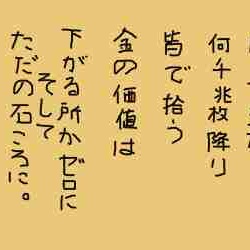 何千兆枚降り
皆で拾う
金の価値は
下がる所かゼロに
そして
ただの石ころに。